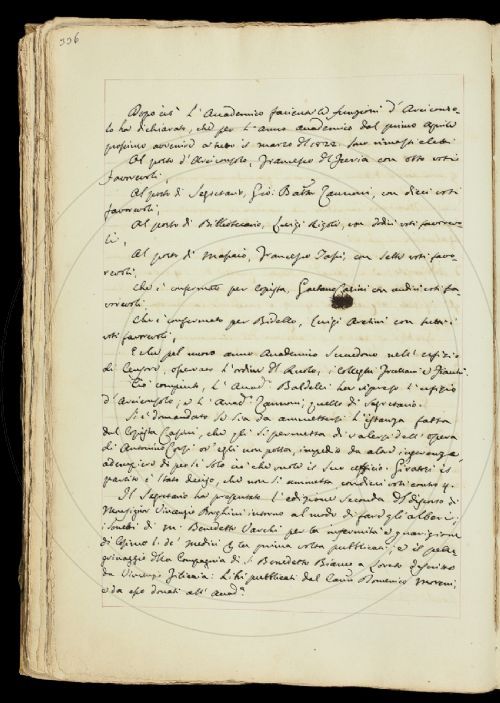 336
Dopo ciò l'Accademico facente le funzioni d'Arciconso-
lo ha dichiarato, che per l'anno accademico dal primo Aprile
prossimo avvenire a tutto il marzo del 1822 son rimasti eletti
Al posto d'Arciconsolo, Francesco Del Furia con otto voti
favorevoli,
Al posto di Segretario, Gio: Batta Zannoni, con dieci voti
favorevoli;
Al posto di Bibliotecario, Luigi Rigoli, con dodici voti favorevo-
li;
Al posto di Massaio, Francesco Tassi, con sette voti favo-
revoli.
Che è confermato per Copista, Gaetano Casini con undici voti fa-
vorevoli
Che è confermato per Bidello, Luigi Archini con tutti i
voti favorevoli;
E che pel nuovo anno Accademico succedono nell'ufizio
di Censori, operato l'ordine del Ruolo, i colleghi Giuliani e
Ciò compiuto, l'Accad. Baldelli ha ripreso l'ufizio
d'Arciconsolo, e l'Accad. Zannoni, quello di Segretario.
Si è domandato se sia da ammettersi l'istanza fatta
dal Copista Casini, che gli si permetta di valersi dell'opera
di Antonino Corsi ov'egli non possa, impedito da altre ingerenze,
adempiere di per se solo ciò che vuole il suo ufficio. Giratosi il
partito è stato deciso, che non si ammetta con dieci voti contro 4.
Il Segretario ha presentato l'edizione seconda del discorso di
Monsignor Vincenzio Borghini intorno al modo di far gli alberi;
i Sonetti di M. Benedetto Varchi per la infermità e guarigione
di Cosimo I. de' Medici per la prima volta pubblicati; e il pelle-
grinaggio della Compagnia di S. Benedetto Bianco a Loreto descritto
da Vincenzo Libri pubblicati dal Can. Domenico Moreni,
e da esso donati all'Accad.